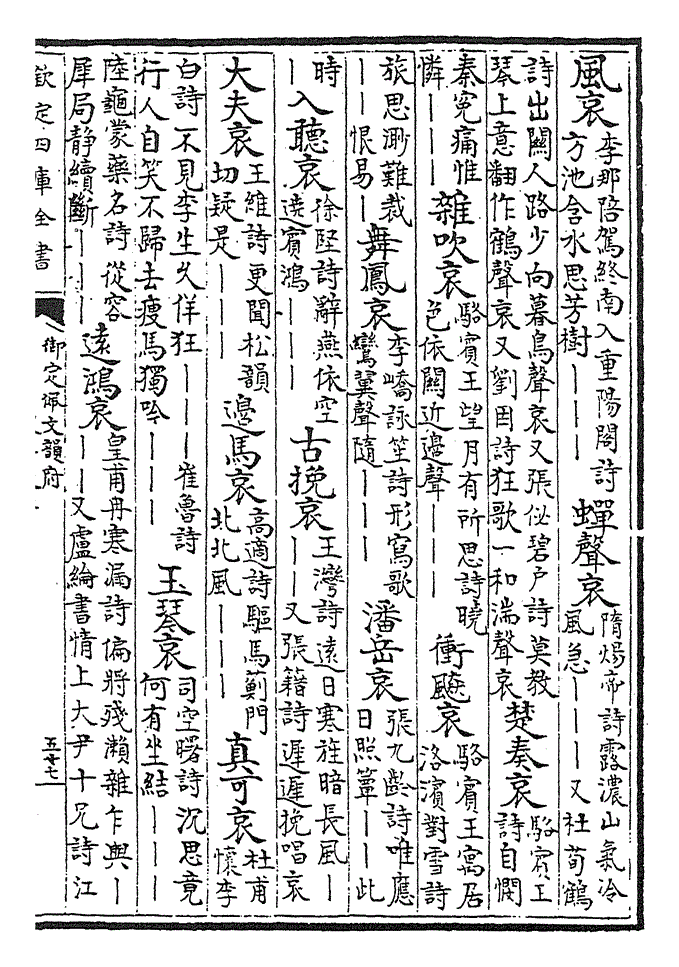 風哀李那陪駕終南入重陽閣詩方池含水思芳樹丨丨丨蟬聲哀隋煬帝詩露濃山氣冷風急丨丨丨又杜荀鶴
詩出關人路少向暮鳥聲哀又張佖碧户詩莫教琴上意翻作鶴聲哀又劉因詩狂歌一和湍聲哀楚奏哀駱賓王詩自憫
秦寃痛惟憐丨丨丨雜吹哀駱賓王望月有所思詩曉色依關近邊聲丨丨丨衝飈哀駱賓王寓居洛濱對雪詩
旅思渺難裁丨丨恨易丨舞鳳哀李嶠詠笙詩形寫歌鸞翼聲隨丨丨丨潘岳哀張九齡詩唯應日照簟丨丨此
時丨入聽哀徐堅詩辭燕依空遶賓鴻丨丨丨古挽哀王灣詩遠日寒旌暗長風丨丨丨又張籍詩遲遲挽唱哀
大夫哀王維詩更聞松韻切疑是丨丨丨邊馬哀高適詩驅馬薊門北北風丨丨丨真可哀杜甫懷李
白詩不見李生久佯狂丨丨丨崔魯詩行人自笑不歸去瘦馬獨吟丨丨丨玉琴哀司空曙詩沉思竟何有坐結丨丨丨
陸龜蒙藥名詩從容犀局静續斷丨丨丨遠鴻哀皇甫冉寒漏詩偏將殘瀨雜乍與丨丨丨又盧綸書情上大尹十兄詩江
欽定四庫全書 御定佩文韻府 五十七